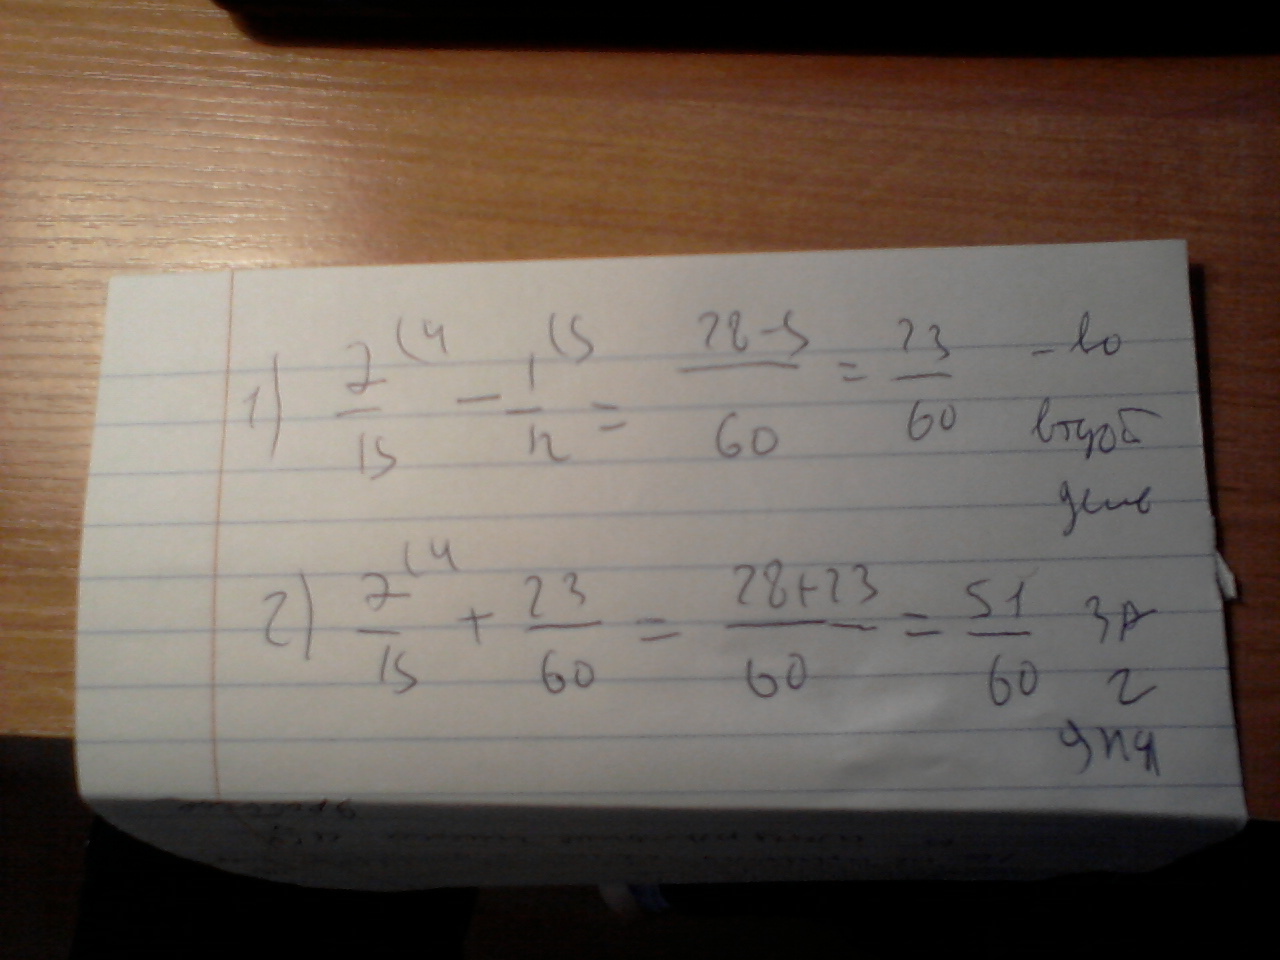 1) 7/15 (4 - 1/12 (5 = 28-5/60 = 23/60 - во
втрой
день
2) 7/15 (4 + 23/60 = 28+23/60 = 51/60 за
2
дня